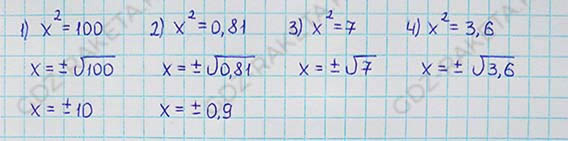 1) x² = 100 2) x² = 0,81 3) x² = 7 4) x² = 3,6
x = ±√100 x = ±√0,81 x = ±√7 x = ±√3,6
x = ±10 x = ±0,9
GDZ-RAKETA